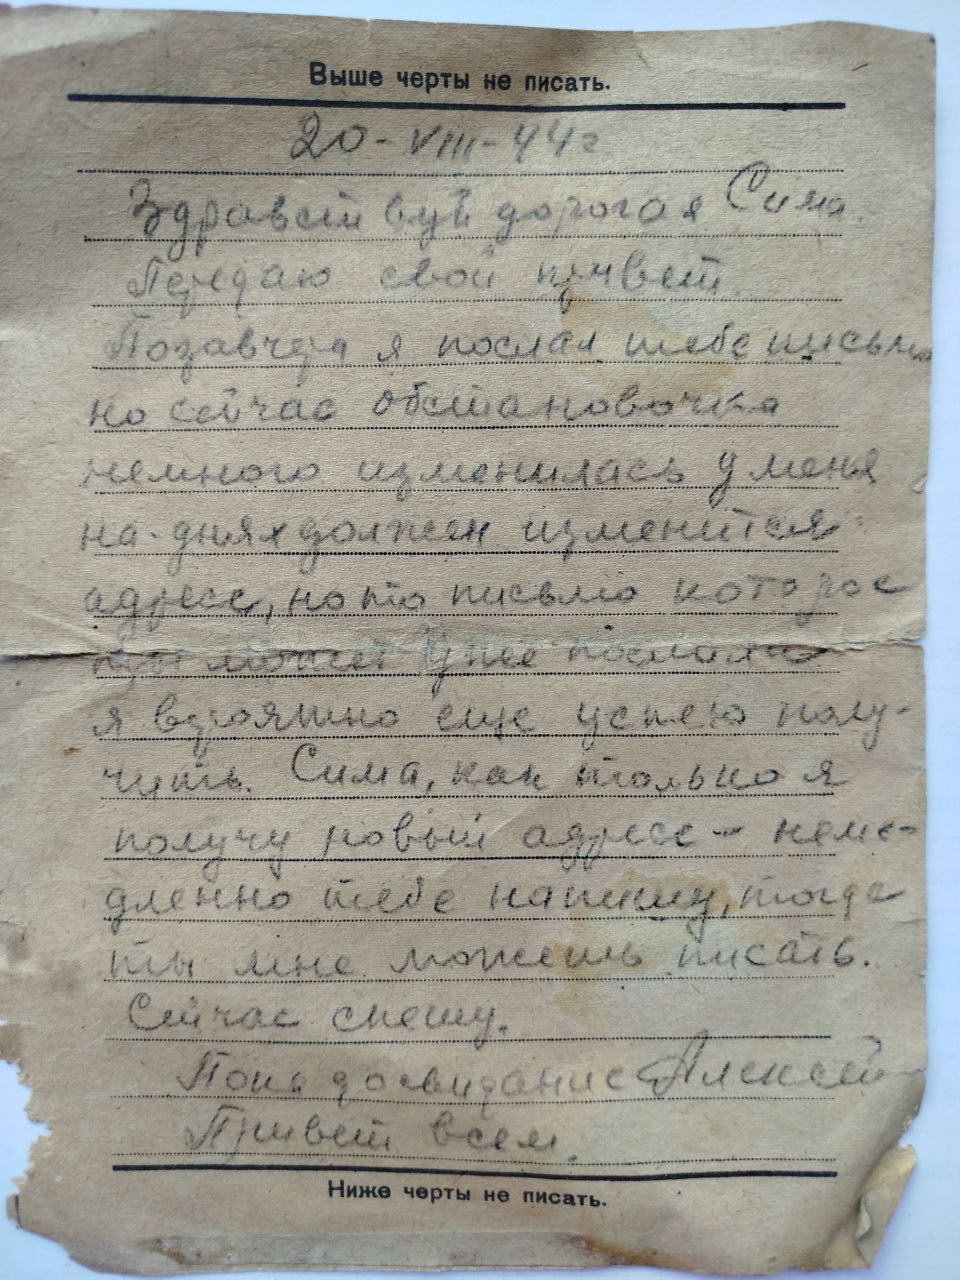 Выше черты не писать.
20-VIII-44 г
Здравствуй дорогая Сима
Передаю свой привет
Позавчера я послал тебе письмо
но сейчас обстановочка
немного изменилась у меня
на-днях должен изменится
адресс, но то письмо которое
ты может уже послала
я вероятно еще успею полу-
чить. Сима, как только я
получу новый адресс - неме-
дленно тебе напишу, тогда
ты мне можешь писать.
Сейчас спешу.
Пока досвидание Алексей
Привет всем.
Ниже черты не писать.